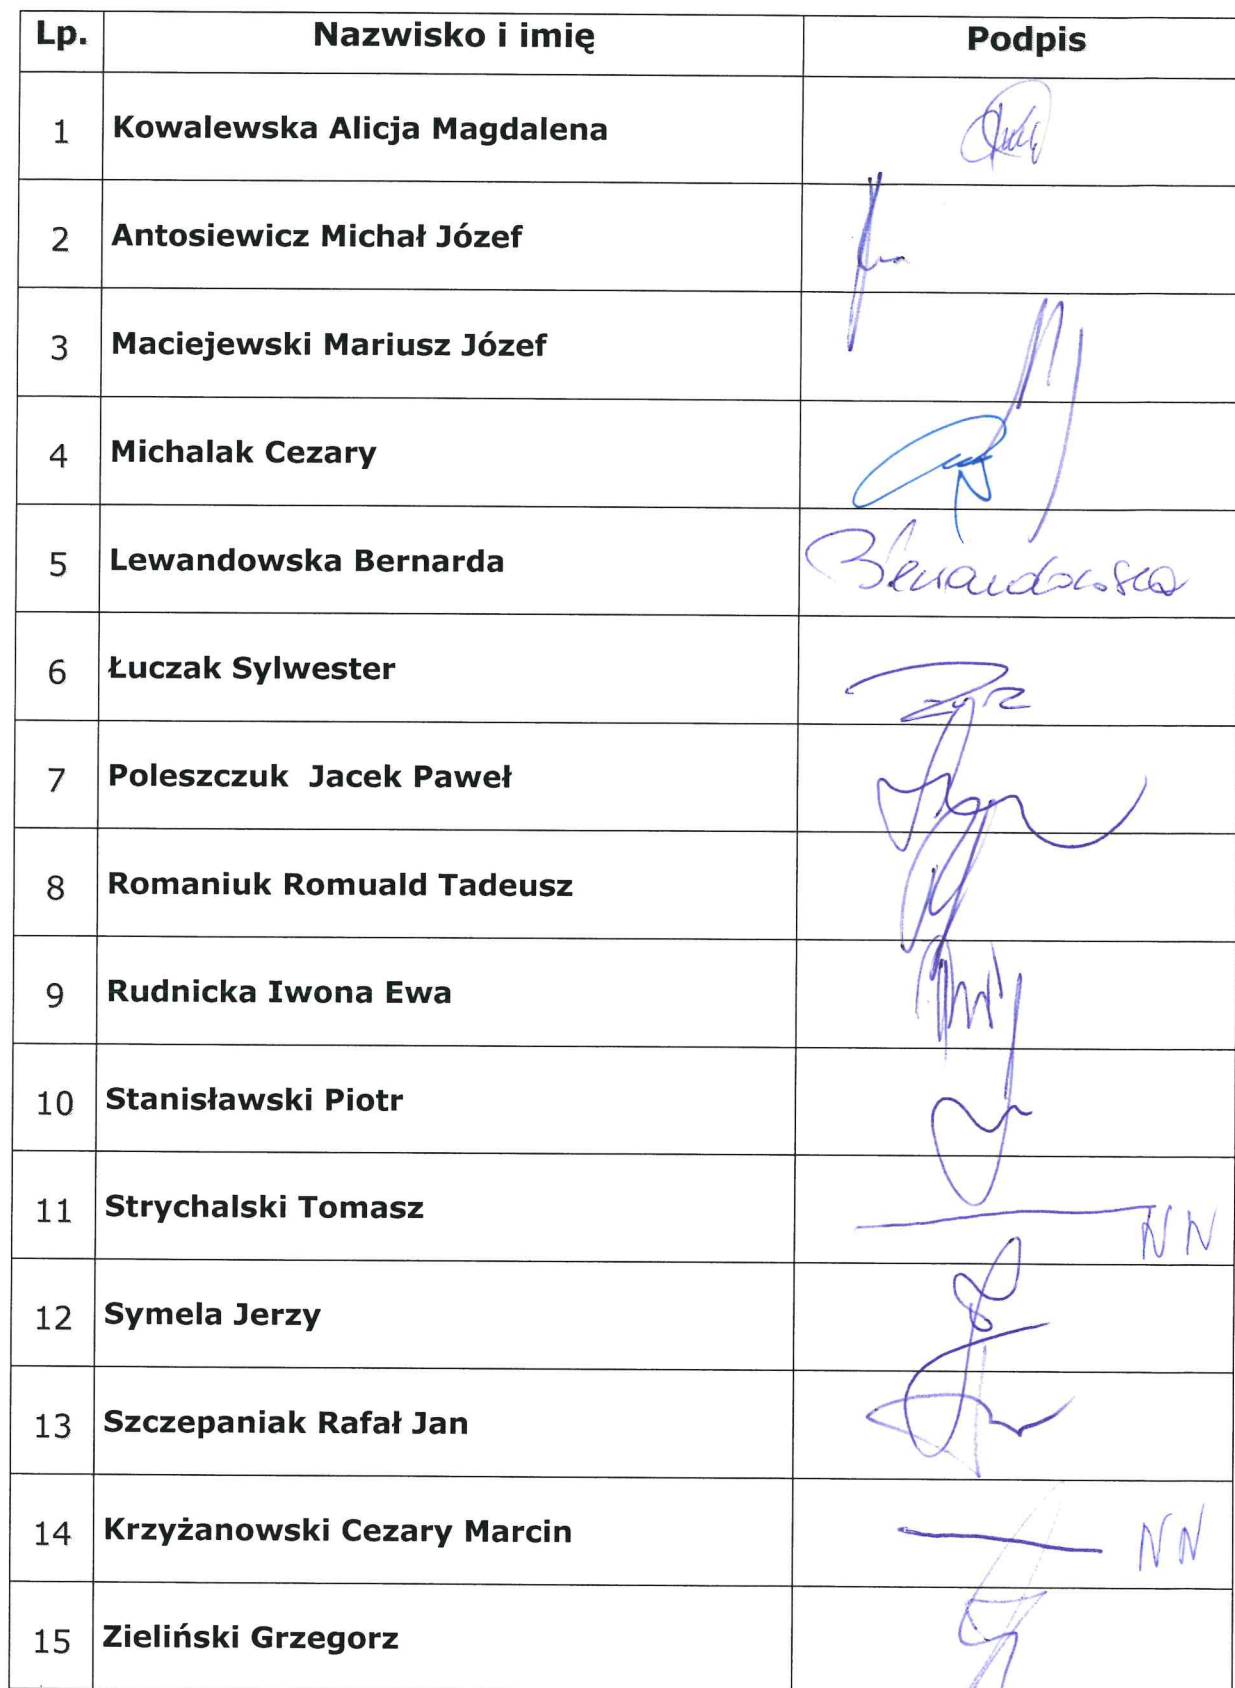 Lp. Nazwisko i imię Podpis
1 Kowalewska Alicja Magdalena
2 Antosiewicz Michał Józef
3 Maciejewski Mariusz Józef
4 Michalak Cezary
5 Lewandowska Bernarda BLewandowska
6 Łuczak Sylwester
7 Poleszczuk Jacek Paweł
8 Romaniuk Romuald Tadeusz
9 Rudnicka Iwona Ewa
10 Stanisławski Piotr
11 Strychalski Tomasz NN
12 Symela Jerzy
13 Szczepaniak Rafał Jan
14 Krzyżanowski Cezary Marcin NN
15 Zieliński Grzegorz